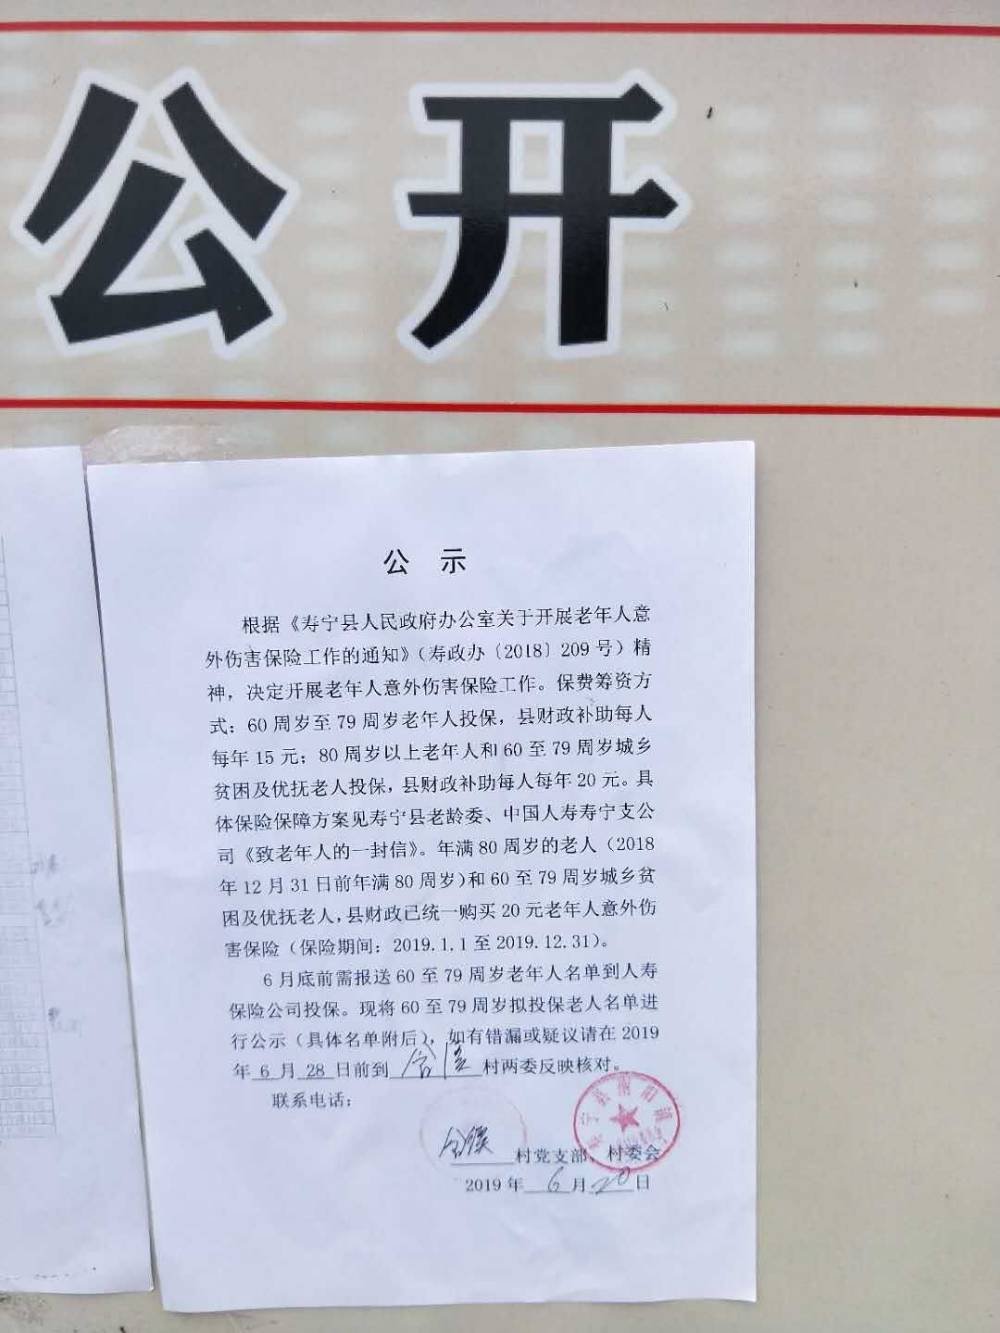 公开
公 示
根据《寿宁县人民政府办公室关于开展老年人意
外伤害保险工作的通知》（寿政办〔2018〕209号）精
神，决定开展老年人意外伤害保险工作。保费筹资方
式：60周岁至79周岁老年人投保，县财政补助每人
每年15元；80周岁以上老年人和60至79周岁城乡
贫困及优抚老人投保，县财政补助每人每年20元。具
体保险保障方案见寿宁县老龄委、中国人寿寿宁支公
司《致老年人的一封信》。年满80周岁的老人（2018
年12月31日前年满80周岁）和60至79周岁城乡贫
困及优抚老人，县财政已统一购买20元老年人意外伤
害保险（保险期间：2019.1.1至2019.12.31）。
6月底前需报送60至79周岁老年人名单到人寿
保险公司投保。现将60至79周岁拟投保老人名单进
行公示（具体名单附后），如有错漏或疑议请在2019
年6月28日前到 村两委反映核对。
联系电话：
村党支部、村委会
2019年6月20日